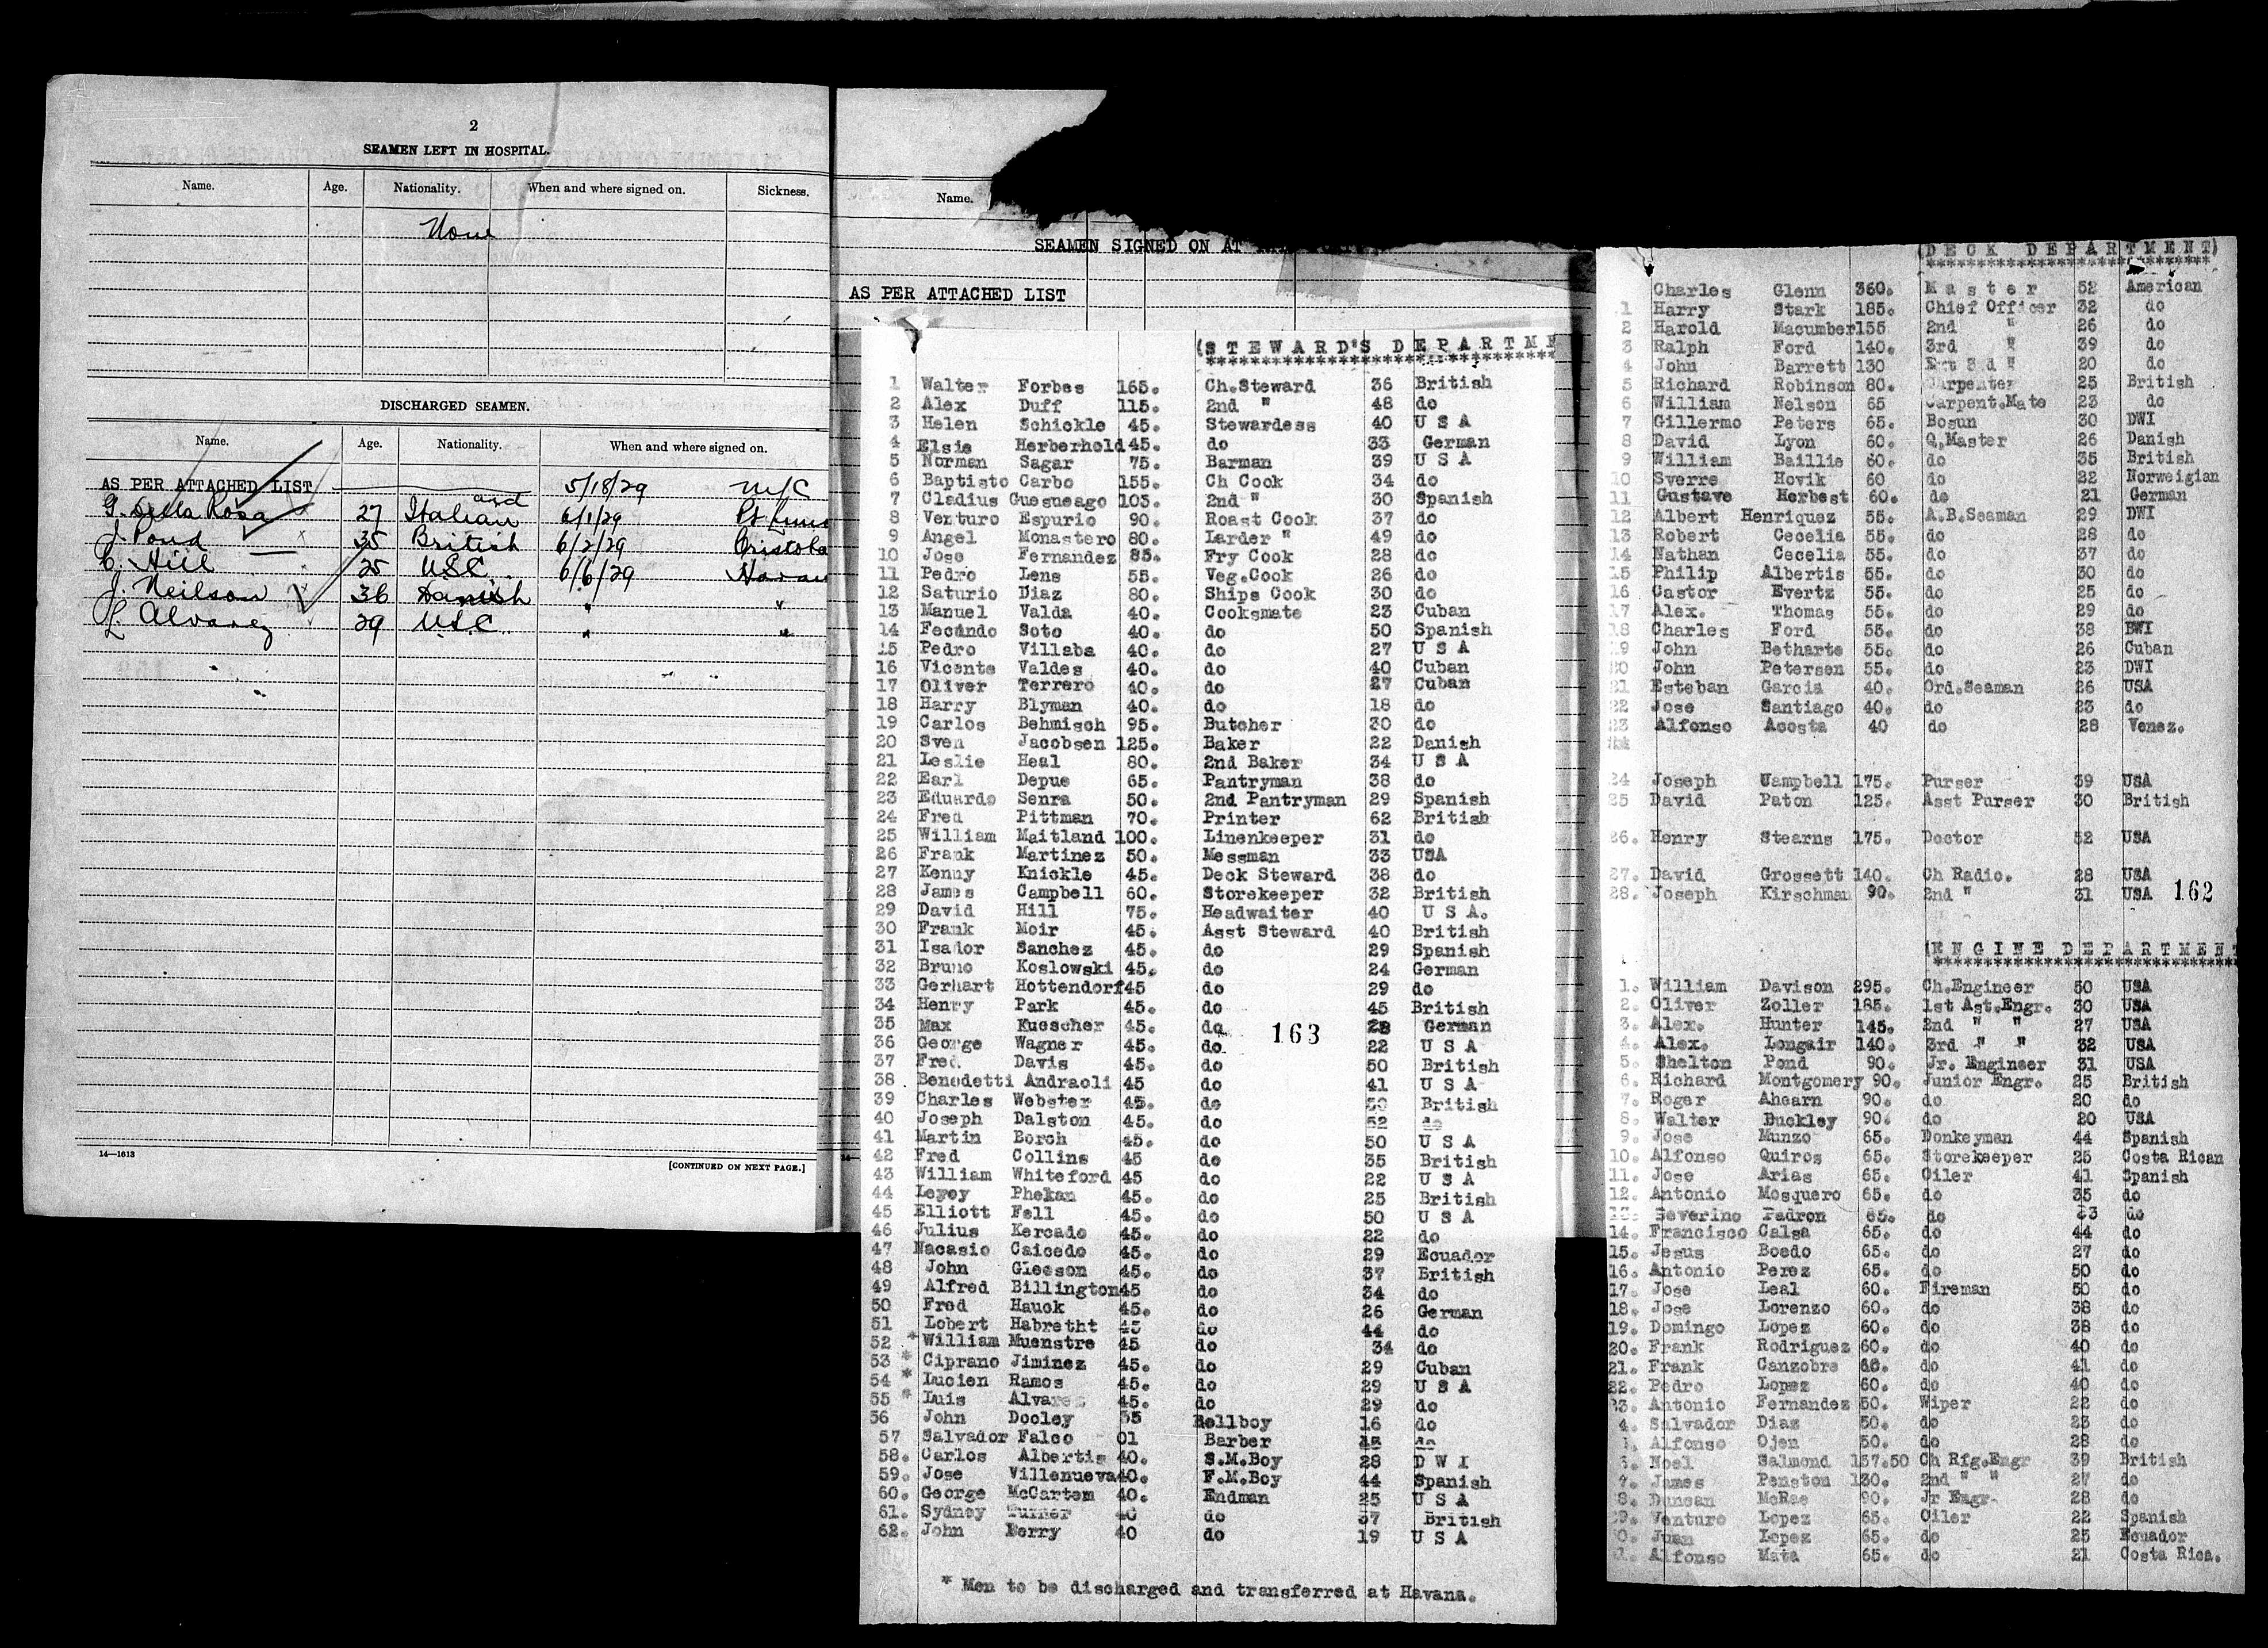 2
SEAMEN LEFT IN HOSPITAL.
Name. Age. Nationality. When and where signed on. Sickness.
None
DISCHARGED SEAMEN.
Name. Age. Nationality. When and where signed on.
AS PER ATTACHED LIST 5/18/29
G. Della Rosa 27 Italian 6/1/29
J. Pond 35 British 6/2/29
C. Hill 25 USC 6/6/29
J. Neilson 36 Danish " "
L Alvarez 29 USC " "
14—1613
[CONTINUED ON NEXT PAGE.]
Name.
SEAMEN SIGNED ON AT
AS PER ATTACHED LIST
(STEWARD'S DEPARTME
1 Walter Forbes 165. Ch.Steward 36 British
2 Alex Duff 115. 2nd " 48 do
3 Helen Schickle 45. Stewardess 40 U S A
4 Elsie Herberhold 45. do 33 German
5 Norman Sagar 75. Barman 39 U S A
6 Baptisto Carbo 155. Ch Cook 34 do
7 Cladius Guesueago 103. 2nd " 30 Spanish
8 Venturo Espurio 90. Roast Cook 37 do
9 Angel Monastero 80. Larder " 49 do
10 Jose Fernandez 85. Fry Cook 28 do
11 Pedro Lens 55. Veg.Cook 26 do
12 Saturio Diaz 80. Ships Cook 30 do
13 Manuel Valda 40. Cooksmate 23 Cuban
14 Fecundo Soto 40. do 50 Spanish
15 Pedro Villaba 40. do 27 U S A
16 Vicente Valdes 40. do 40 Cuban
17 Oliver Terrero 40. do 27 Cuban
18 Harry Blyman 40. do 18 do
19 Carlos Behmisch 95. Butcher 30 do
20 Sven Jacobsen 125. Baker 22 Danish
21 Leslie Heal 80. 2nd Baker 34 U S A
22 Earl Depue 65. Pantryman 38 do
23 Eduardo Senra 50. 2nd Pantryman 29 Spanish
24 Fred Pittman 70. Printer 62 British
25 William Maitland 100. Linenkeeper 31 do
26 Frank Martinez 50. Messman 33 USA
27 Kenny Knickle 45. Deck Steward 38 do
28 James Campbell 60. Storekeeper 32 British
29 David Hill 75. Headwaiter 40 U S A.
30 Frank Moir 45. Asst Steward 40 British
31 Isador Sanchez 45. do 29 Spanish
32 Bruno Koslowski 45. do 24 German
33 Gerhart Hottendorf 45 do 29 do
34 Henry Park 45. do 45 British
35 Max Kuescher 45. do 28 German
163
36 George Wagner 45. do 22 U S A
37 Fred. Davis 45. do 50 British
38 Benedetti Andraoli 45 do 41 U S A
39 Charles Webster 45. do British
40 Joseph Dalston 45. do 52 do
41 Martin Borch 45. do 50 U S A
42 Fred Collins 45 do 35 British
43 William Whiteford 45 do 22 U S A
44 Leyoy Phekan 45. do 25 British
45 Elliott Fell 45. do 50 U S A
46 Julius Kercado 45. do 22 do
47 Nacasio Caicedo 45. do 29 Ecuador
48 John Gleeson 45. do 37 British
49 Alfred Billington 45 do 34 do
50 Fred Hauck 45. do 26 German
51 Lobert Habretht 45 do 44 do
52 * William Muenstre 45 do 34 do
53 * Ciprano Jiminez 45. do 29 Cuban
54 * Lucien Ramos 45. do 29 U S A
55 * Luis Alvarez 45. do 29 do
56 John Dooley 35 Bellboy 16 do
57 Salvador Falco 01 Barber do
58. Carlos Albertis 40. S.M.Boy 28 D W I
59. Jose Villenueva 40. F.M.Boy 44 Spanish
60. George McCartem 40. Endman 25 U S A
61. Sydney Turner 40 do 37 British
62. John Berry 40 do 19 U S A
* Men to be discharged and transferred at Havana.
(DECK DEPARTMENT)
Charles Glenn 360. Master 52 American
1 Harry Stark 185. Chief Officer 32 do
2 Harold Macumber 155 2nd " 26 do
3 Ralph Ford 140. 3rd " 39 do
4 John Barrett 130 Ext 3rd " 20 do
5 Richard Robinson 80. Carpenter 25 British
6 William Nelson 65 Carpent.Mate 23 do
7 Gillermo Peters 65. Bosun 30 DWI
8 David Lyon 60. Q.Master 26 Danish
9 William Baillie 60. do 35 British
10 Sverre Hovik 60 do 22 Norweigian
11 Gustave Herbest 60. do 21 German
12 Albert Henriquez 55. A.B.Seaman 29 DWI
13 Robert Cecelia 55. do 28 do
14 Nathan Cecelia 55. do 37 do
15 Philip Albertis 55. do 30 do
16 Castor Evertz 55. do 25 do
17 Alex. Thomas 55. do 29 do
18 Charles Ford 55. do 38 BWI
19 John Betharte 55. do 26 Cuban
20 John Petersen 55. do 23 DWI
21 Esteban Garcia 40. Ord.Seaman 26 USA
22 Jose Santiago 40. do 23 do
23 Alfonso Acosta 40 do 28 Venez.
24 Joseph Campbell 175. Purser 39 USA
25 David Paton 125. Asst Purser 30 British
26. Henry Stearns 175. Doctor 52 USA
27. David Grossett 140. Ch Radio. 28 USA
28. Joseph Kirschman 90. 2nd " 31 USA
162
(ENGINE DEPARTMENT
1. William Davison 295. Ch.Engineer 50 USA
2. Oliver Zoller 185. 1st Ast.Engr. 30 USA
3. Alex. Hunter 145. 2nd " " 27 USA
4. Alex. Longair 140. 3rd " " 32 USA
5. Shelton Pond 90. Jr. Engineer 31 USA
6. Richard Montgomery 90. Junior Engr. 25 British
7. Roger Ahearn 90. do 20 do
8. Walter Buckley 90. do 20 USA
9. Jose Munzo 65. Donkeyman 44 Spanish
10. Alfonso Quiros 65. Storekeeper 25 Costa Rican
11. Jose Arias 65. Oiler 41 Spanish
12. Antonio Mosquero 65. do 35 do
13. Severino Padron 65. do do
14. Francisco Calsa 65. do 44 do
15. Jesus Boedo 65. do 27 do
16. Antonio Perez 65. do 50 do
17. Jose Leal 60. Fireman 50 do
18. Jose Lorenzo 60. do 38 do
19. Domingo Lopez 60. do 38 do
20. Frank Rodriguez 60. do 40 do
21. Frank Canzobre 60. do 41 do
22. Pedro Lopez 60. do 40 do
23. Antonio Fernandez 50. Wiper 22 do
4. Salvador Diaz 50. do 23 do
Alfonso Ojen 50. do 28 do
6. Noel Salmond 157.50 Ch Rfg.Engr 39 British
7. James Penston 130. 2nd " " 27 do
8. Duncan McRae 90. Jr Engr. 28 do
29. Venturo Lopez 65. Oiler 22 Spanish
0. Juan Lopez 65. do 25 Ecuador
1. Alfonso Mata 65. do 21 Costa Rica.